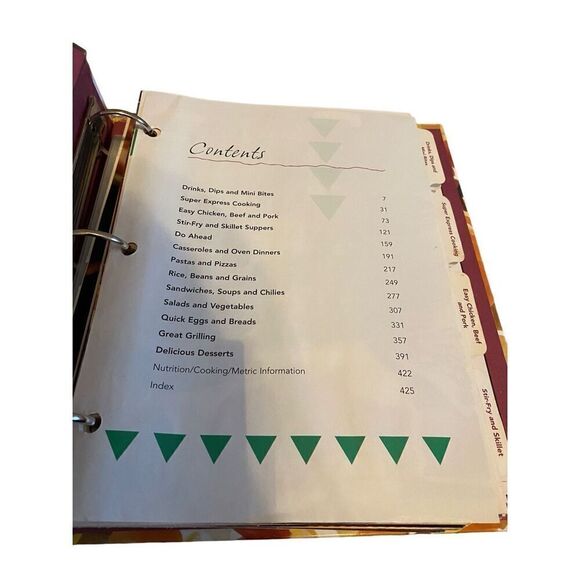 Contents
Drinks, Dips and Mini Bites 7
Super Express Cooking 31
Easy Chicken, Beef and Pork 73
Stir-Fry and Skillet Suppers 121
Do Ahead 159
Casseroles and Oven Dinners 191
Pastas and Pizzas 217
Rice, Beans and Grains 249
Sandwiches, Soups and Chilies 277
Salads and Vegetables 307
Quick Eggs and Breads 331
Great Grilling 357
Delicious Desserts 391
Nutrition/Cooking/Metric Information 422
Index 425
Drinks, Dips and
Mini Bites
Super Express Cooking
Easy Chicken, Beef
and Pork
Stir-Fry and Skillet